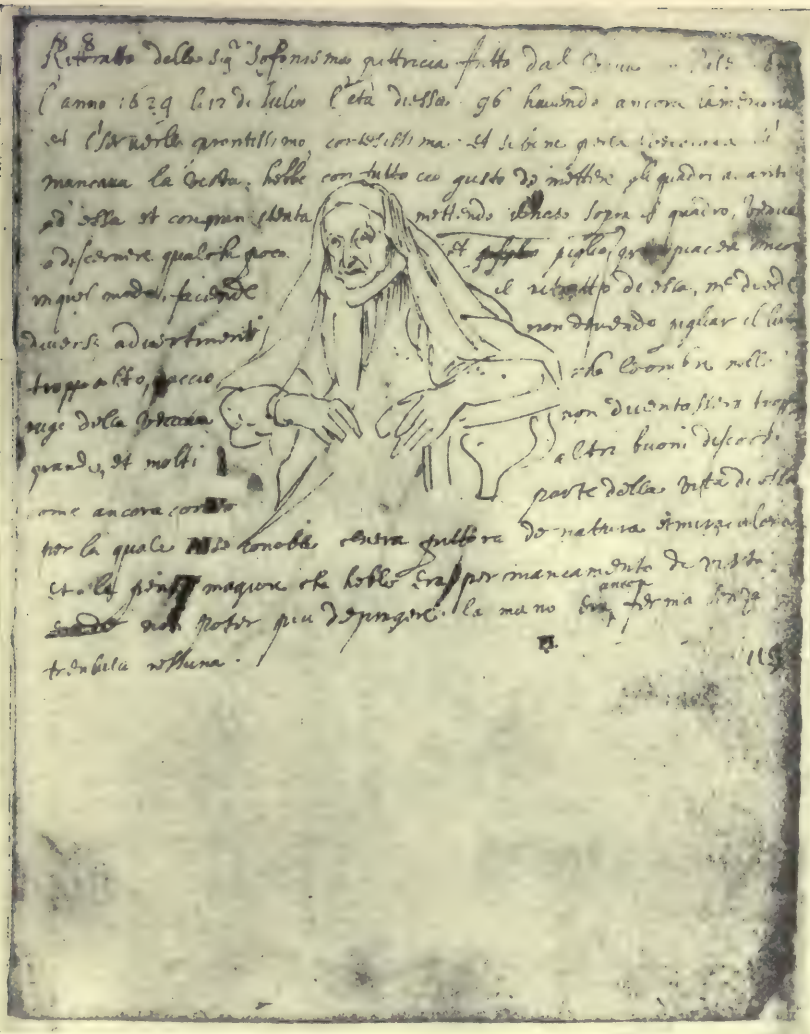 Rittratto della sigra Sofonisma pittricia fatto dal vivo
l'anno 1624 li 12 di Julio l'età di essa 96 havendo ancora la memoria
et il serverllo prontissimo, cortesissima et si bene per la
mancava la vista, hebbe con tutto cio gusto de mettere gli quadri avanti
ad essa et con gran stenta mettendo il naso sopra il quadro,
a discernere qualche poco et piglio gran piacere ancora
in quel modo, facendo il ritratto di essa, me diede
diversi advertimenti non dovendo pigliar il lume
troppo alto, accio che l'ombre nelle
ruge della vecciaia non diventassero troppo
grande, et molti altri buoni discorsi
come ancora conto parte della vita di essa
per la quale se conobbe ch'era pittora de natura et miraculosa
et la pena magiore che hebbe era per mancamento di vista
non poter piu depingere. la mano era ancora ferma senza
trembula nessuna.
115